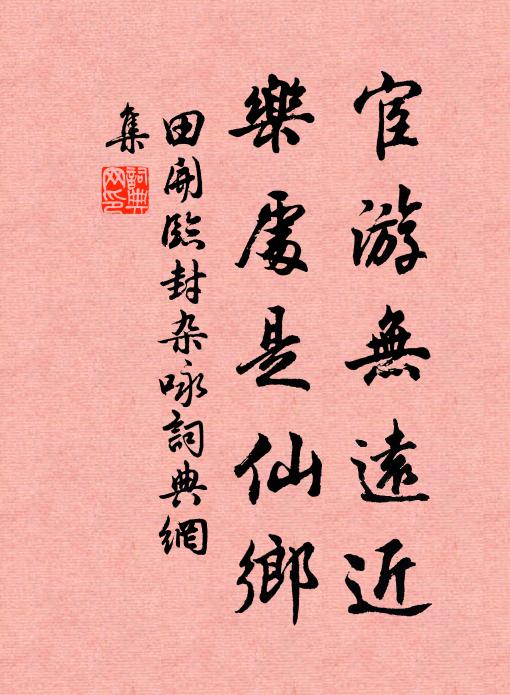 宦游無遠近
樂處是仙鄉
田開臨封杂咏詞典網
集
詞典
网印